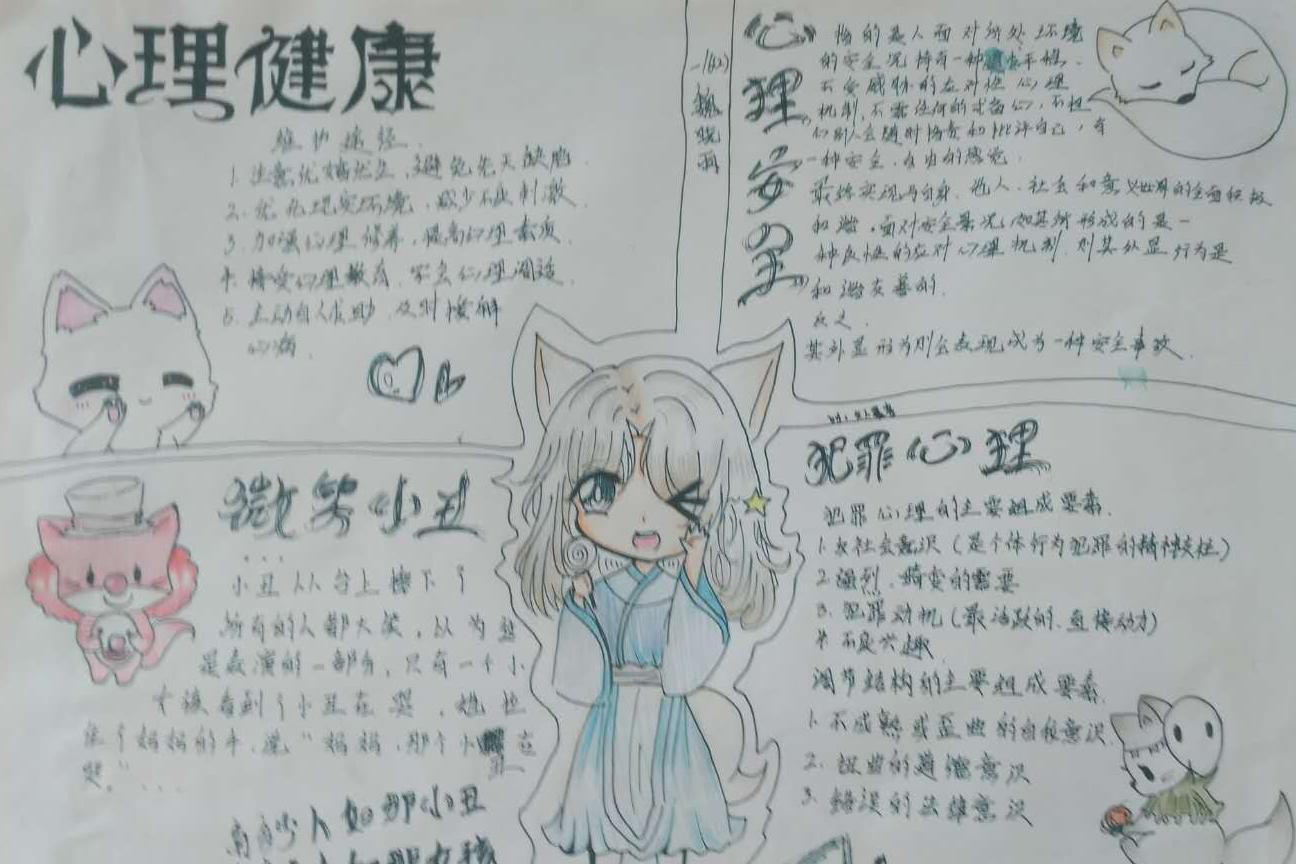 心理健康
维护途径.
1. 注意优婚优生,避免先天缺陷.
2. 优化现实环境,减少不良刺激.
3. 加强心理修养,提高心理素质.
4. 接受心理教育,学会心理调适.
5. 主动自人求助,及时接纳
心病.
微笑小丑
...
小丑从台上摔下了
所有的人都大笑,以为这
是表演的一部分,只有一个小
女孩看到了小丑在哭,她拉
妈妈的手,说"妈妈,那个小丑在
哭."...
有多少人如那小丑
一(2)
心理安全
指的是人面对所处环境
的安全况持有一种
不受威胁的应对性心理
机制,不需任何的戒备心,不担
心别人会随时指责和批评自己,有
一种安全、自由的感觉.
最终实现与自身、他人、社会和意义世界的全面积极
和谐,面对安全景况,如其所形成的是一
种良性的应对心理机制,则其外显行为是
和谐友善的.
反之,
其外显行为则会表现成为一种安全事故.
犯罪心理
犯罪心理的主要组成要素.
1. 反社会意识(是个体行为犯罪的精神支柱)
2. 强烈、畸变的需要
3. 犯罪动机(最活跃的、直接动力)
4. 不良兴趣.
调节结构的主要组成要素.
1. 不成熟或歪曲的自我意识.
2. 扭曲的道德意识
3. 错误的法律意识